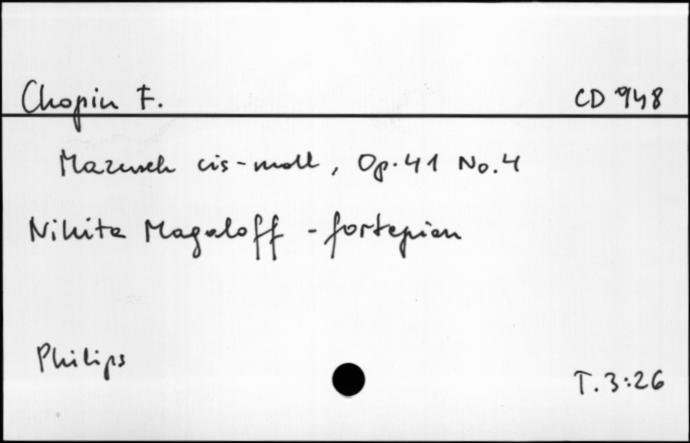 Chopin F. CD 948
Mazurek cis-moll, Op.41 No.4
Nikita Magaloff - fortepian
Philips T. 3:26